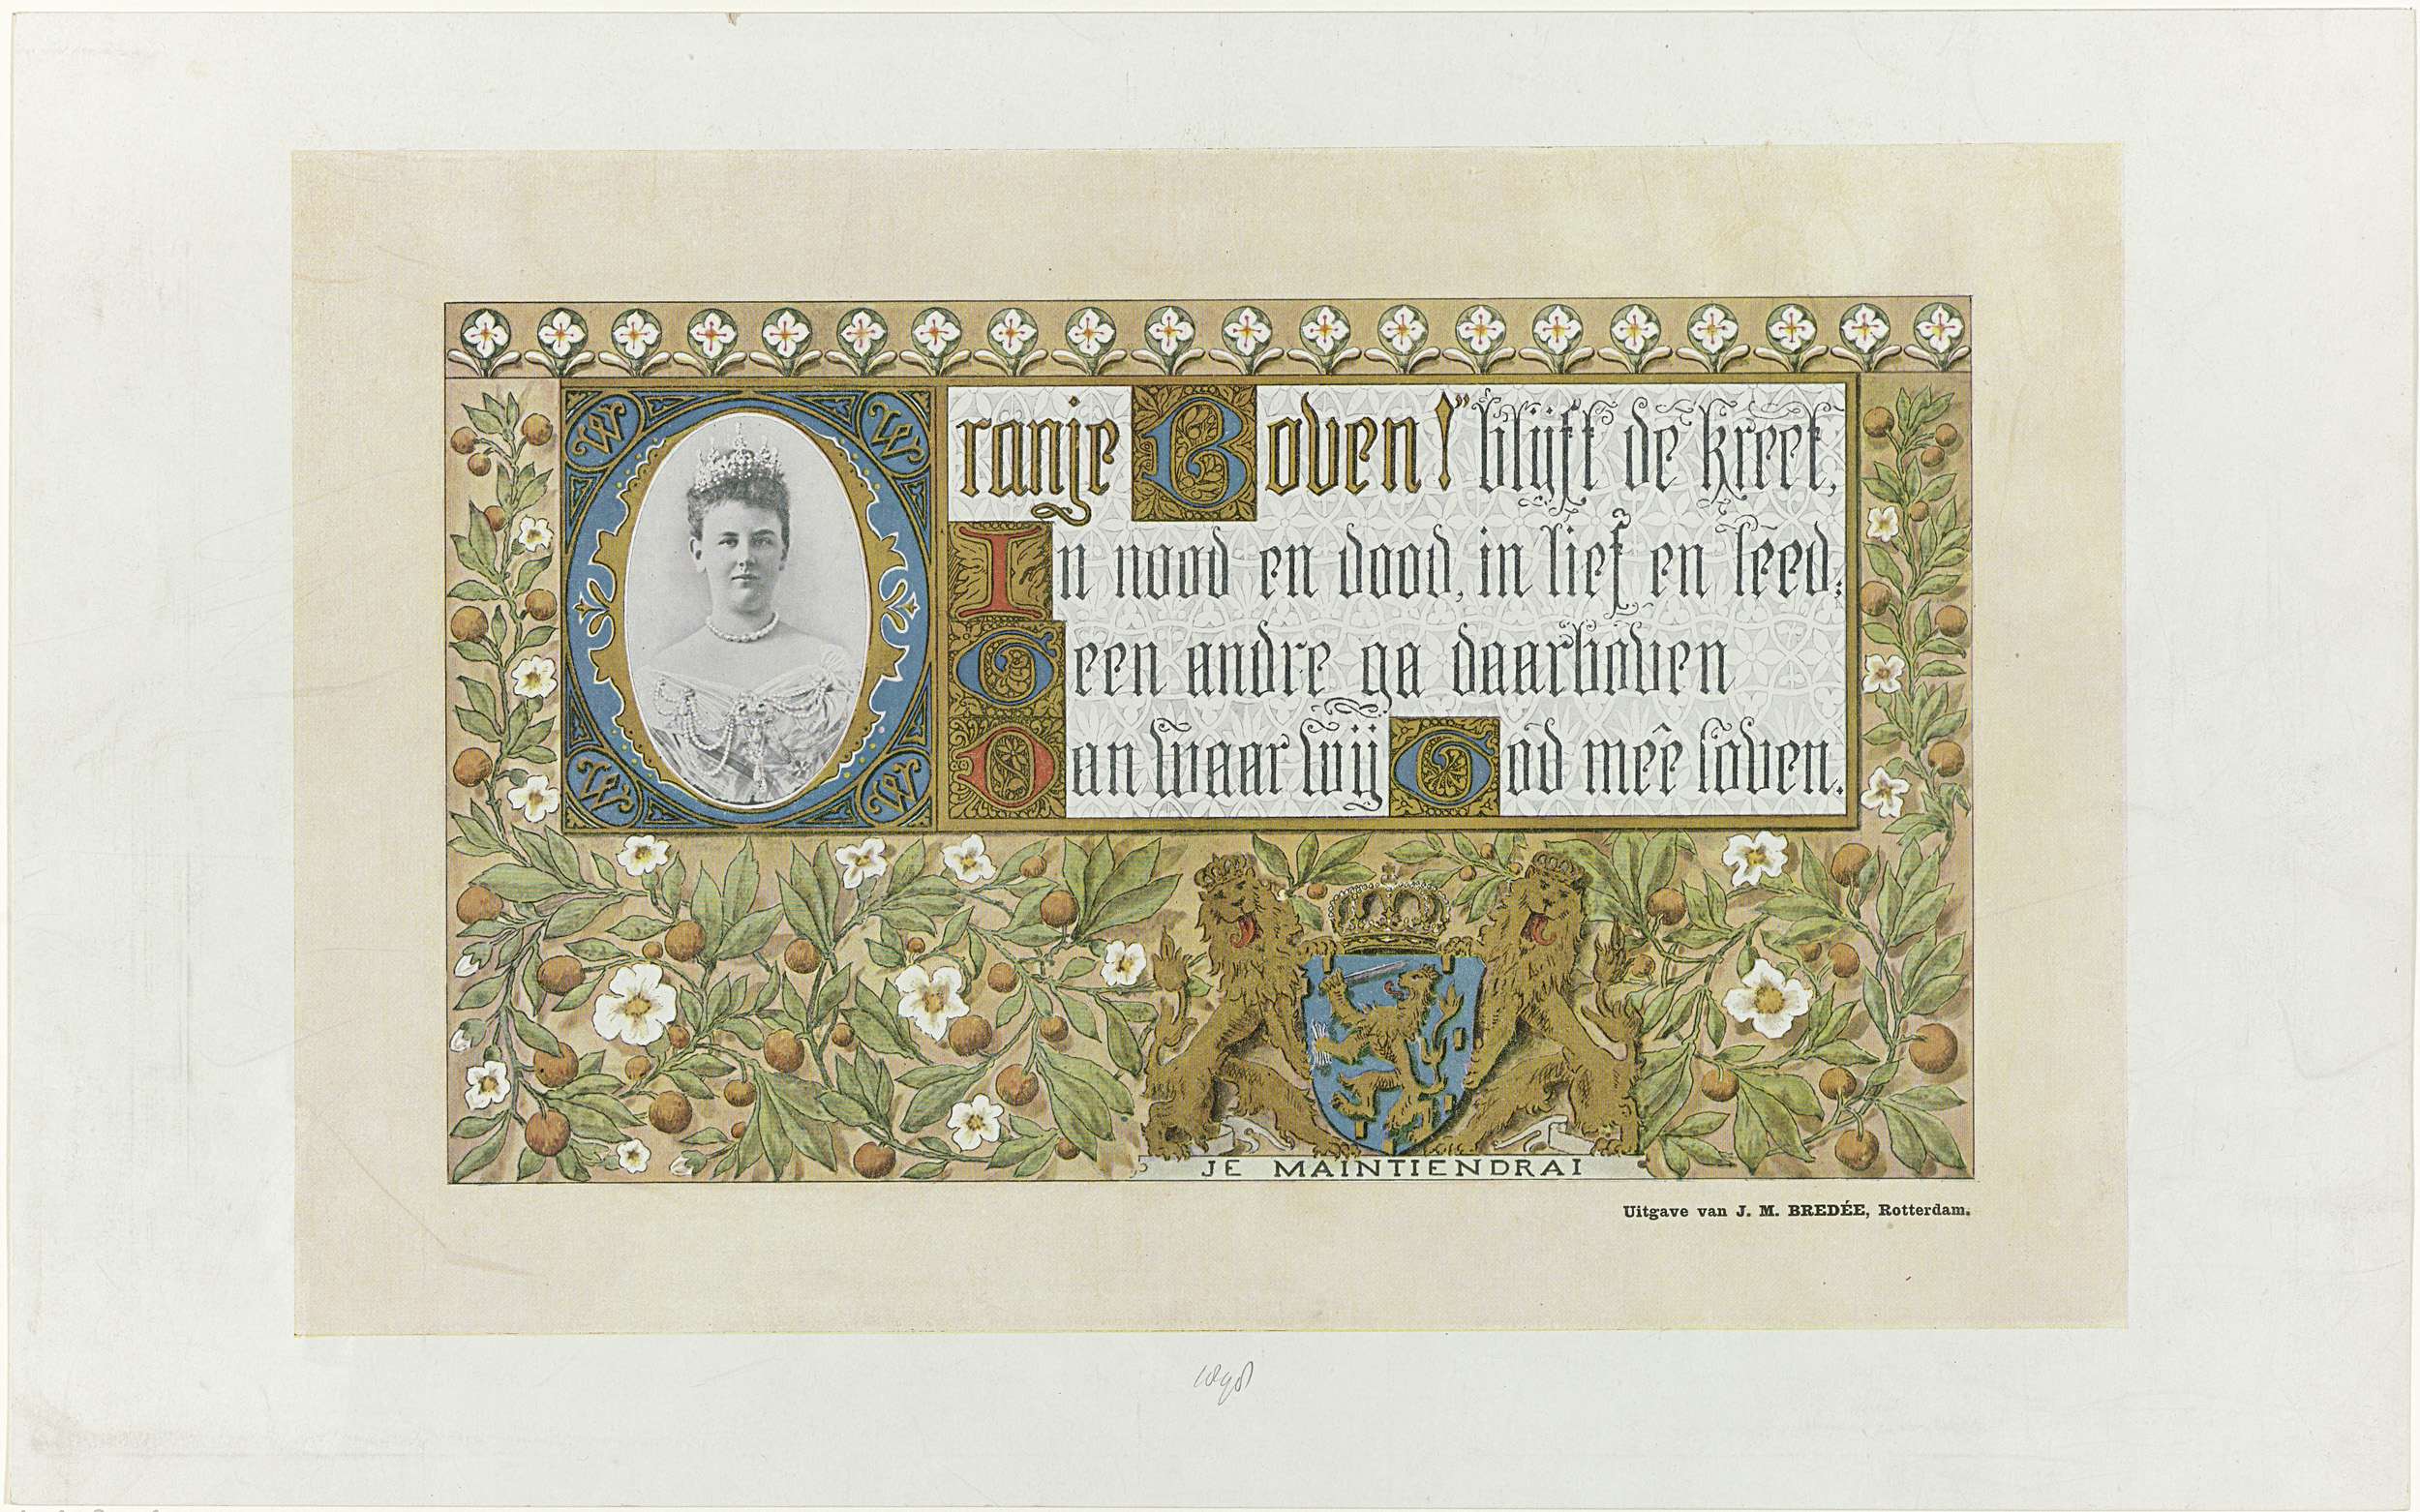 W W
ranje Boven!" blijft de kreet,
In nood en dood, in lief en leed;
Geen andre ga daarboven
Dan waar wij God meê loven.
W W
JE MAINTIENDRAI
Uitgave van J. M. BREDÉE, Rotterdam.
1898